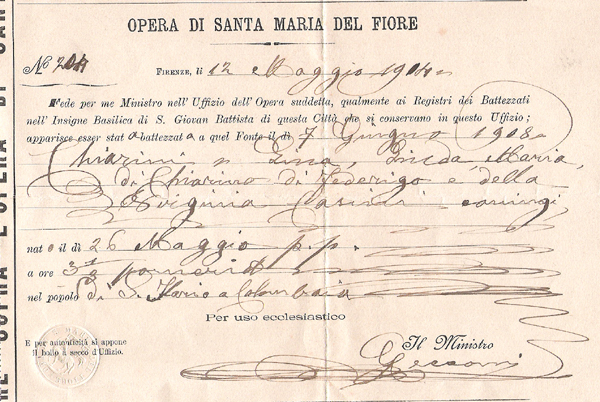 OPERA DI SANTA MARIA DEL FIORE
No 204
FIRENZE, li 12 Maggio 1904
Fede per me Ministro nell'Uffizio dell'Opera suddetta, qualmente ai Registri dei Battezzati
nell'Insigne Basilica di S. Giovan Battista di questa Città che si conservano in questo Uffizio;
apparisce esser stata battezzata a quel Fonte il dì 7 Giugno
Chiarini Maria
di Chiarino di Federigo e della
coniugi
nat il dì 26 Maggio p.p.
a ore 3½ pomerid
nel popolo di S. Ilario a Colombaia
Per uso ecclesiastico
E per autenticità si appone
il bollo a secco d'Uffizio.
Il Ministro